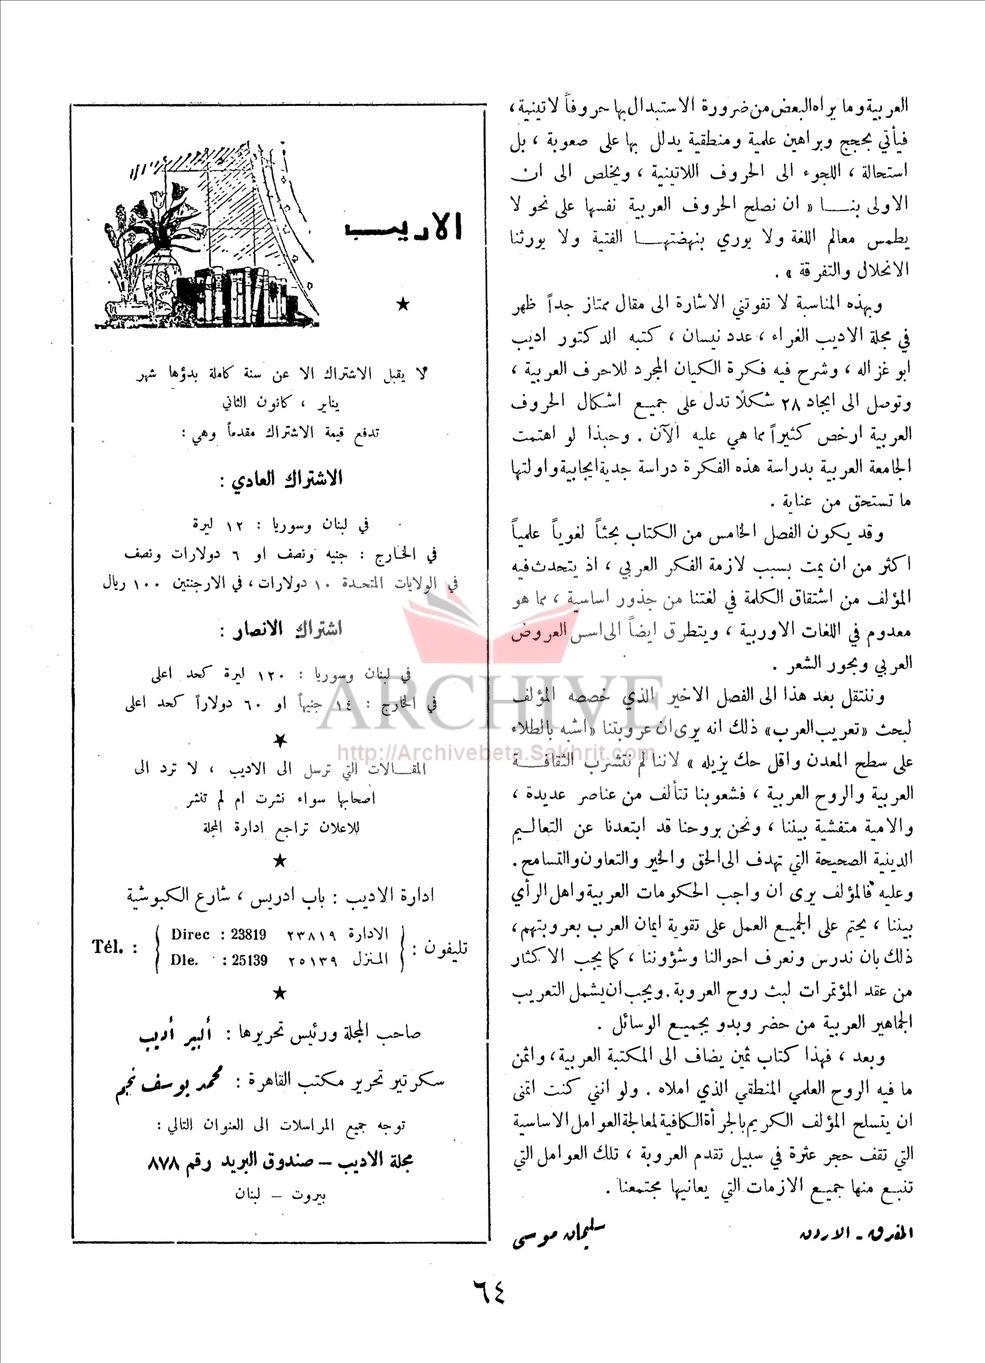 العربية وما يراه البعض من ضرورة الاستبدال بها حروفاً لاتينية ،
فيأتي بحجج وبراهين علمية ومنطقية يدلل بها على صعوبة ، بل
استحالة ، اللجوء الى الحروف اللاتينية ، ويخلص الى ان
الاولى بنا « ان نصلح الحروف العربية نفسها على نحو لا
يطمس معالم اللغة ولا يوري بنهضتها الفتية ولا يورثنا
الانحلال والتفرقة » .
وبهذه المناسبة لا تفوتني الاشارة الى مقال ممتاز جداً ظهر
في مجلة الاديب الغراء ، عدد نيسان ، كتبه الدكتور اديب
ابو غزاله ، وشرح فيه فكرة الكيان المجرد للاحرف العربية ،
وتوصل الى ايجاد ٢٨ شكلًا تدل على جميع اشكال الحروف
العربية ارخص كثيراً مما هي عليه الآن . وحبذا لو اهتمت
الجامعة العربية بدراسة هذه الفكرة دراسة جدية ايجابية واولتها
ما تستحق من عناية .
وقد يكون الفصل الخامس من الكتاب بحثاً لغوياً علمياً
اكثر من ان يمت بسبب لازمة الفكر العربي ، اذ يتحدث فيه
المؤلف من اشتقاق الكلمة في لغتنا من جذور اساسية ، مما هو
معدوم في اللغات الاوربية ، ويتطرق ايضاً الى اسس العروض
العربي وبحور الشعر .
وننتقل بعد هذا الى الفصل الاخير الذي خصصه المؤلف
لبحث «تعريب العرب» ذلك انه يرى ان عروبتنا «اشبه بالطلاء
على سطح المعدن واقل حك يزيله » لاننا لم نتشرب الثقافة
العربية والروح العربية ، فشعوبنا تتألف من عناصر عديدة ،
والامية متفشية بيننا ، ونحن بروحنا قد ابتعدنا عن التعاليم
الدينية الصحيحة التي تهدف الى الحق والخير والتعاون والتسامح.
وعليه فالمؤلف يرى ان واجب الحكومات العربية واهل الرأي
بيننا ، يحتم على الجميع العمل على تقوية ايمان العرب بعروبتهم،
ذلك بان ندرس ونعرف احوالنا وشؤوننا ، كما يجب الاكثار
من عقد المؤتمرات لبث روح العروبة. ويجب ان يشمل التعريب
الجماهير العربية من حضر وبدو بجميع الوسائل .
وبعد ، فهذا كتاب ثمين يضاف الى المكتبة العربية، واثمن
ما فيه الروح العلمي المنطقي الذي املاه . ولو انني كنت اتمنى
ان يتسلح المؤلف الكريم بالجرأة الكافية لمعالجة العوامل الاساسية
التي تقف حجر عثرة في سبيل تقدم العروبة ، تلك العوامل التي
تنبع منها جميع الازمات التي يعانيها مجتمعنا .
المفرق - الاردن سليمان موسى
الاديب
★
لا يقبل الاشتراك الا عن سنة كاملة بدؤها شهر
يناير ، كانون الثاني
تدفع قيمة الاشتراك مقدماً وهي :
الاشتراك العادي :
في لبنان وسوريا : ١٢ ليرة
في الخارج : جنيه ونصف او ٦ دولارات ونصف
في الولايات المتحدة ١٠ دولارات ، في الارجنتين ١٠٠ ريال
اشتراك الانصار :
في لبنان وسوريا : ١٢٠ ليرة كحد اعلى
في الخارج : ١٤ جنيهاً او ٦٠ دولاراً كحد اعلى
★
المقالات التي ترسل الى الاديب ، لا ترد الى
اصحابها سواء نشرت ام لم تنشر
للاعلان تراجع ادارة المجلة
★
ادارة الاديب : باب ادريس ، شارع الكبوشية
تليفون : { الادارة ٢٣٨١٩ Direc : 23819 } Tél. :
{ المنزل ٢٥١٣٩ Dle. : 25139 }
★
صاحب المجلة ورئيس تحريرها : ألبير أديب
سكرتير تحرير مكتب القاهرة : محمد يوسف نجم
توجه جميع المراسلات الى العنوان التالي :
مجلة الاديب – صندوق البريد رقم ٨٧٨
بيروت – لبنان
٦٤
ARCHIVE
http://Archivebeta.Sakhrit.com